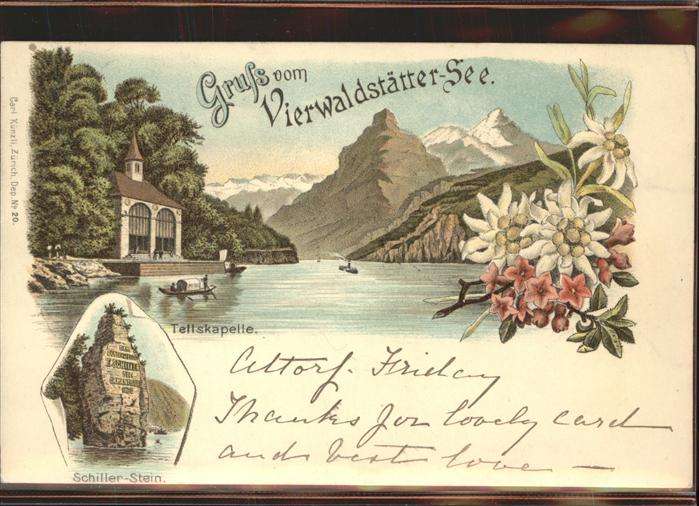 Gruss vom
Vierwaldstätter-See.
Carl Künzli, Zürich, Dep. No 20.
Tellskapelle.
Schiller-Stein.
Altorf. Friday
Thanks for lovely card
and best love —